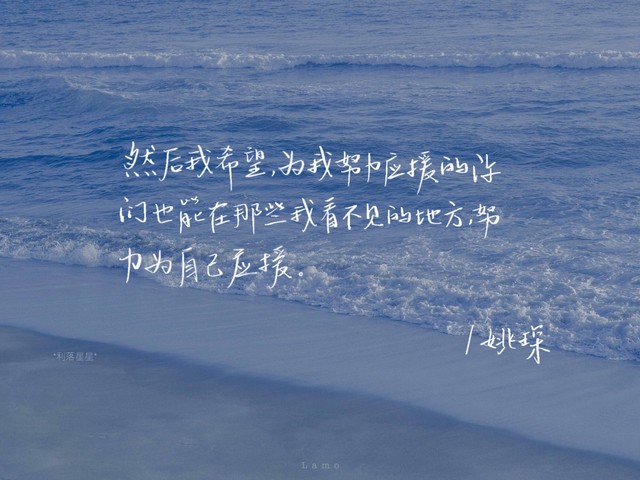 然后我希望,为我努力应援的你
们也能在那些我看不见的地方,努
力为自己应援。
/姚琛
*利落星星*
Lamo